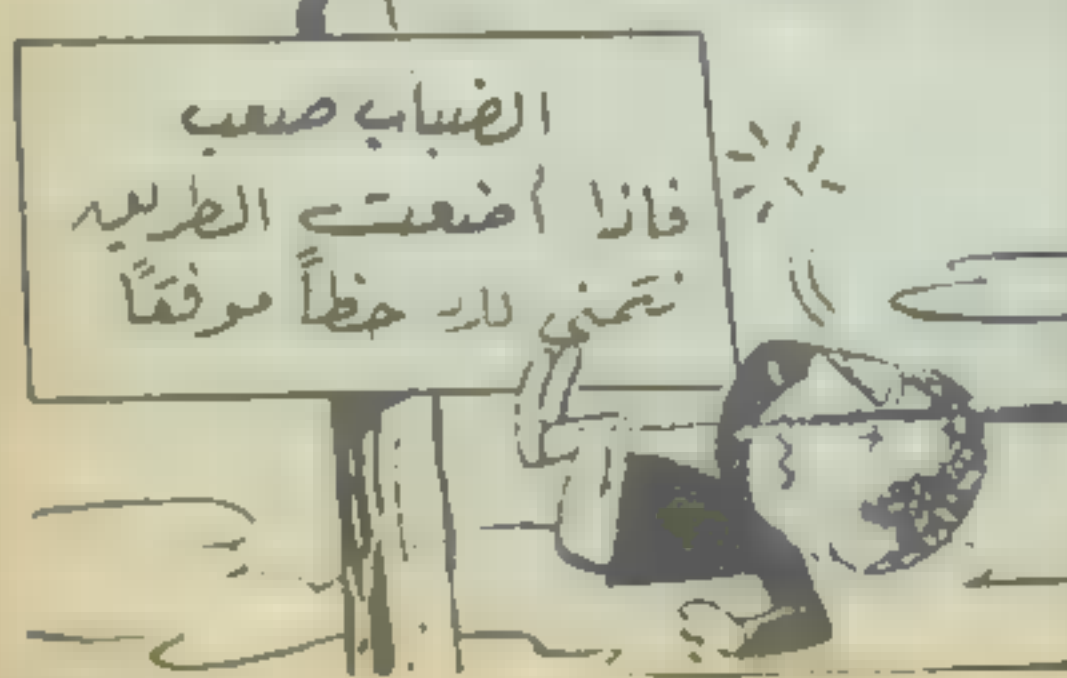 الضباب صعب
فاذا اضعت الطريق
نتمنى لك حظاً موفقاً